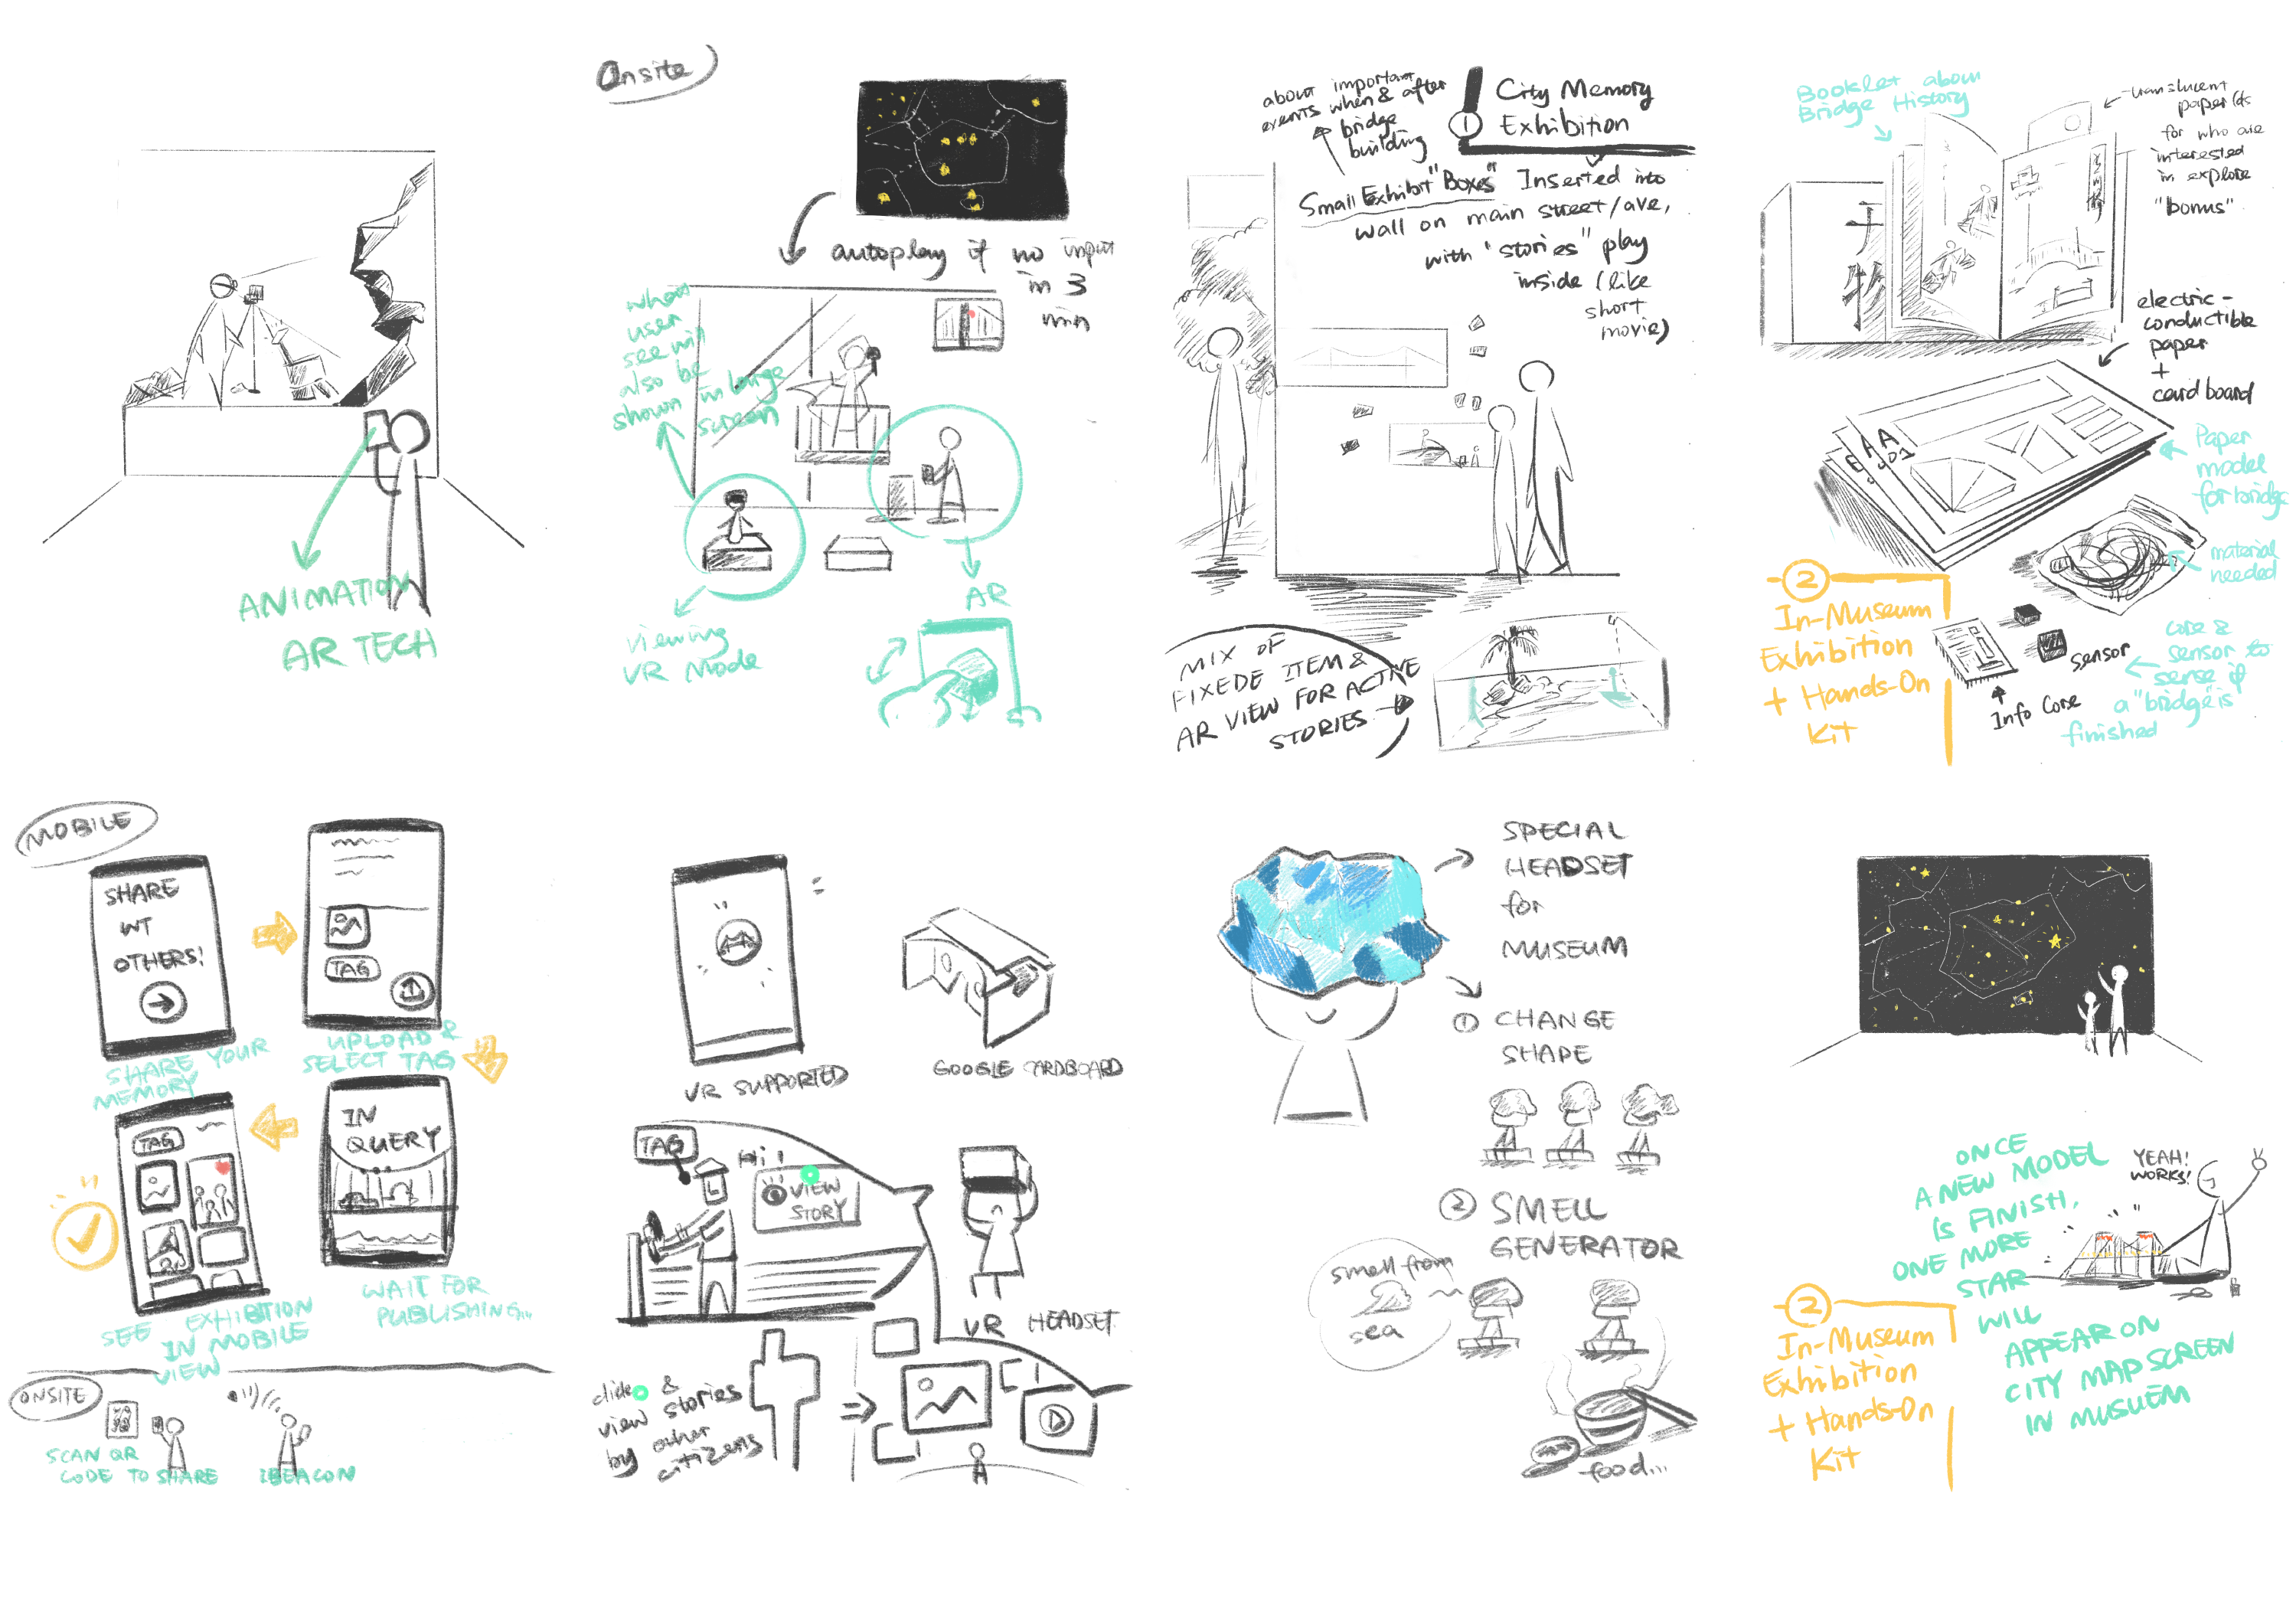 ANIMATION
AR TECH
Onsite
autoplay if no input
in 3
min
when
user
see will
also be
shown in large
screen
viewing
VR Mode
AR
about important
events when & after
bridge
building
1
City Memory
Exhibition
Small Exhibit "Boxes" Inserted into
wall on main street/ave,
with "stories" play
inside (like
short
movie)
MIX OF
FIXEDE ITEM &
AR VIEW FOR ACTIVE
STORIES
Booklet about
Bridge History
translucent
paper
for who are
interested
in explore
"bonus"
electric-
conductible
paper
+
card board
A
A
Paper
model
for bridge
material
needed
core &
sensor to
sense if
a "bridge" is
finished
sensor
Info Core
2
In-Museum
Exhibition
+ Hands-On
Kit
MOBILE
SHARE
WT
OTHERS!
SHARE YOUR
MEMORY
TAG
UPLOAD &
SELECT TAG
IN
QUERY
WAIT FOR
PUBLISHING...
TAG
SEE EXHIBITION
IN MOBILE
VIEW
ONSITE
SCAN QR
CODE TO SHARE
IBEACON
VR SUPPORTED
GOOGLE CARDBOARD
TAG
Hi!
VIEW
STORY
VR HEADSET
&
view stories
by other
citizens
SPECIAL
HEADSET
for
MUSEUM
1 CHANGE
SHAPE
2 SMELL
GENERATOR
smell from
sea
food...
YEAH!
WORKS!
ONCE
A NEW MODEL
IS FINISH,
ONE MORE
STAR
WILL
APPEAR ON
CITY MAP SCREEN
IN MUSUEM
2
In-Museum
Exhibition
+ Hands-On
Kit